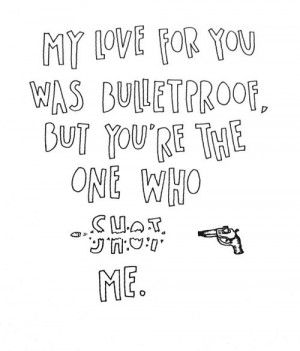 MY LOVE FOR YOU
WAS BULLETPROOF,
BUT YOU'RE THE
ONE WHO
SHOT
ME.